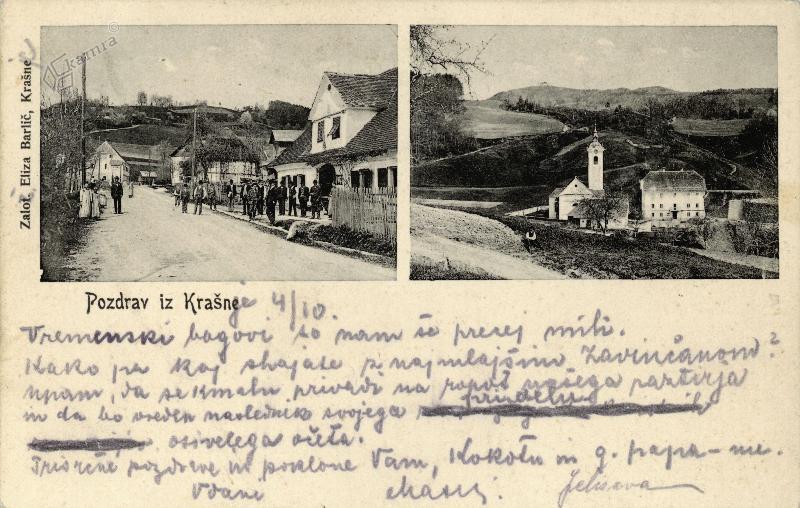 kamra
Založ. Eliza Barlič, Krašne
Pozdrav iz Krašne
je 4/10.
Vremenski bogovi so nam še precej mili.
Kako pa kaj shajate z najmlajšim Zavinčanom?
Upam, da se kmalu privadi na ropot našega
in da bo vreden naslednik svojega
osivelega očeta.
Prisrčne pozdrave in poklone Vam, Kokotu in g. papa-me.
Vdani